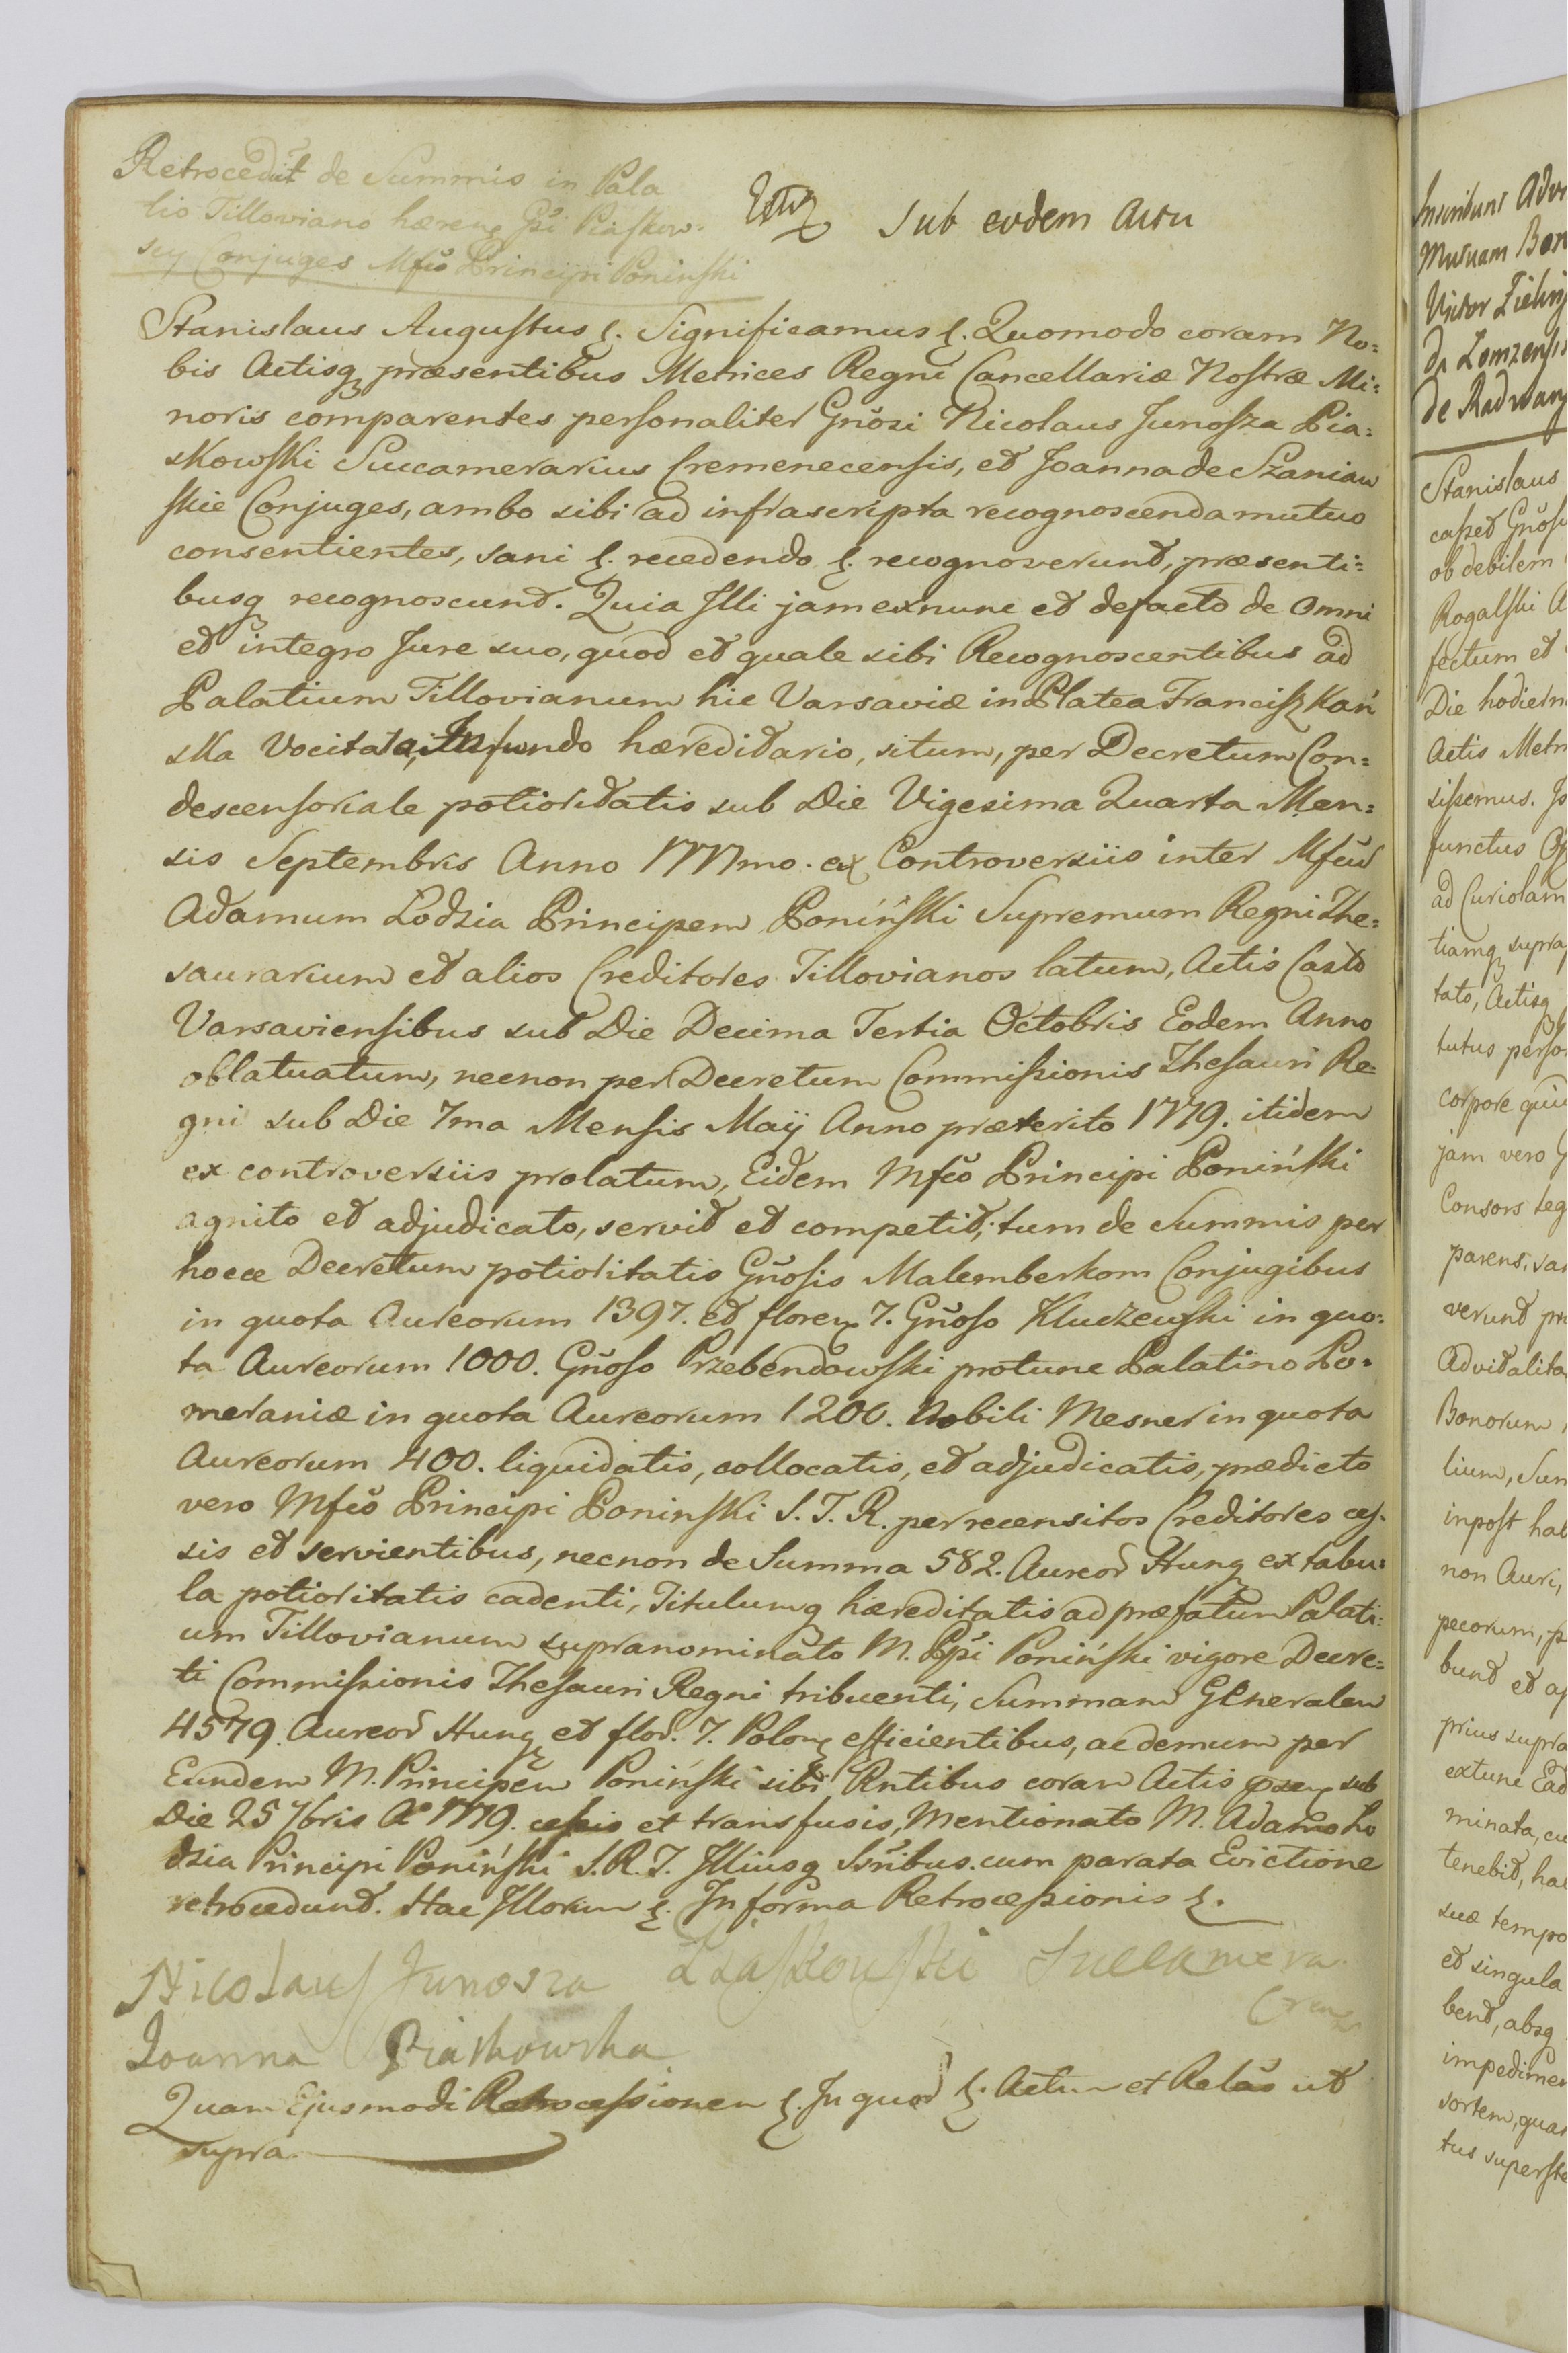 Retrocedūt de Summis in Pala
tio Tilloviano hæren Gsi Piaskow-
scy Conjuges Mfco Principi Poninski
Sub eodem Actu
Stanislaus Augustus &. Significamus &. Quomodo coram No=
bis Actisq præsentibus Metrices Regni Cancellariæ Nostræ Mi=
noris comparentes personaliter Gnŏsi Nicolaus Junosza Pia=
skowski Succamerarius Cremenecensis, et Joanna de Szaniaw
skie Conjuges, ambo sibi ad infrascripta recognoscenda mutuo
consentientes, sani &. recedendo &. recognoverunt, præsenti=
busq recognoscunt. Quia Illi jam exnunc et defacto de Omni
et integro Jure suo, quod et quale sibi Recognoscentibus ad
Palatium Tillovianum hic Varsaviæ in Platea Franciszkań
ska Vocitata, In fundo hæreditario, situm, per Decretum Con=
descensoriale potioritatis sub Die Vigesima Quarta Men=
sis Septembris Anno 1777mo. ex Controversiis inter Mfcū
Adamum Lodzia Principem Poniński Supremum Regni The=
saurarium et alios Creditores Tillovianos latum, Actis Castr
Varsaviensibus sub Die Decima Tertia Octobris Eodem Anno
oblatuatum, necnon per Decretum Commissionis Thesauri Re=
gni sub Die 7ma Mensis Maÿ Anno præterito 1779. itidem
ex controversiis prolatum, Eidem Mfcŏ Principi Poniński
agnito et adjudicato, servit et competit, tum de Summis per
hocce Decretum potioritatis Gnŏsis Malemberkom Conjugibus
in quota Aureorum 1397. et floren 7. Gnŏso Kluczewski in quo=
ta Aureorum 1000. Gnŏso Przebendowski protunc Palatino Po=
meraniæ in quota Aureorum 1200. Nobili Mesner in quota
Aureorum 400. liquidatis, collocatis, et adjudicatis, prædicto
vero Mfcŏ Principi Poninski S. T. R. per recensitos Creditores ces-
sis et servientibus, necnon de Summa 582. Aureor Hung ex tabu=
la potioritatis cadenti, Titulumq hæreditatis ad præfatum Palati=
um Tillovianum supranominato M. Ppi Poniński vigore Decre=
ti Commissionis Thesauri Regni tribuenti, Summam GEneralem
4579. Aureor Hung et flor. 7. Polon efficientibus, ac demum per
Eundem M. Principem Poniński sibi Rntibus coram Actis præn sub
Die 25 7bris Aº 1779. cessis et transfusis, Mentionato M. Adamo Lo
dzia Principi Poniński S. R. T. Illiusq Ssribus. cum parata Evictione
retrocedunt. Hac Illorum &. In forma Retrocessionis &.
Nicolaus Junosza Piaskowski Succamera.
Crem
Joanna Piaskowska
Quam Ejusmodi Retrocessionem &. In quor &. Actum et Relao ut
supra.
Stanislaus
ob debilem
Rogalski A
fectum et
Die hodiern
Actis Metr
sissemus. Jo
functus Of
ad Curiolam
tiamq supra
tato, Actisq
tutus perso
corpore qui
jam vero G
Consors leg
parens, sa
verunt pr
Advitalita
Bonorum
lium, Sum
inpost hab
non Auri,
pecorum, p
bunt et a
prius supra
extunc Ea
minata, cu
tenebit, ha
suæ tempo
et singula
bent, absq
impedimen
sortem, qua
tus superste